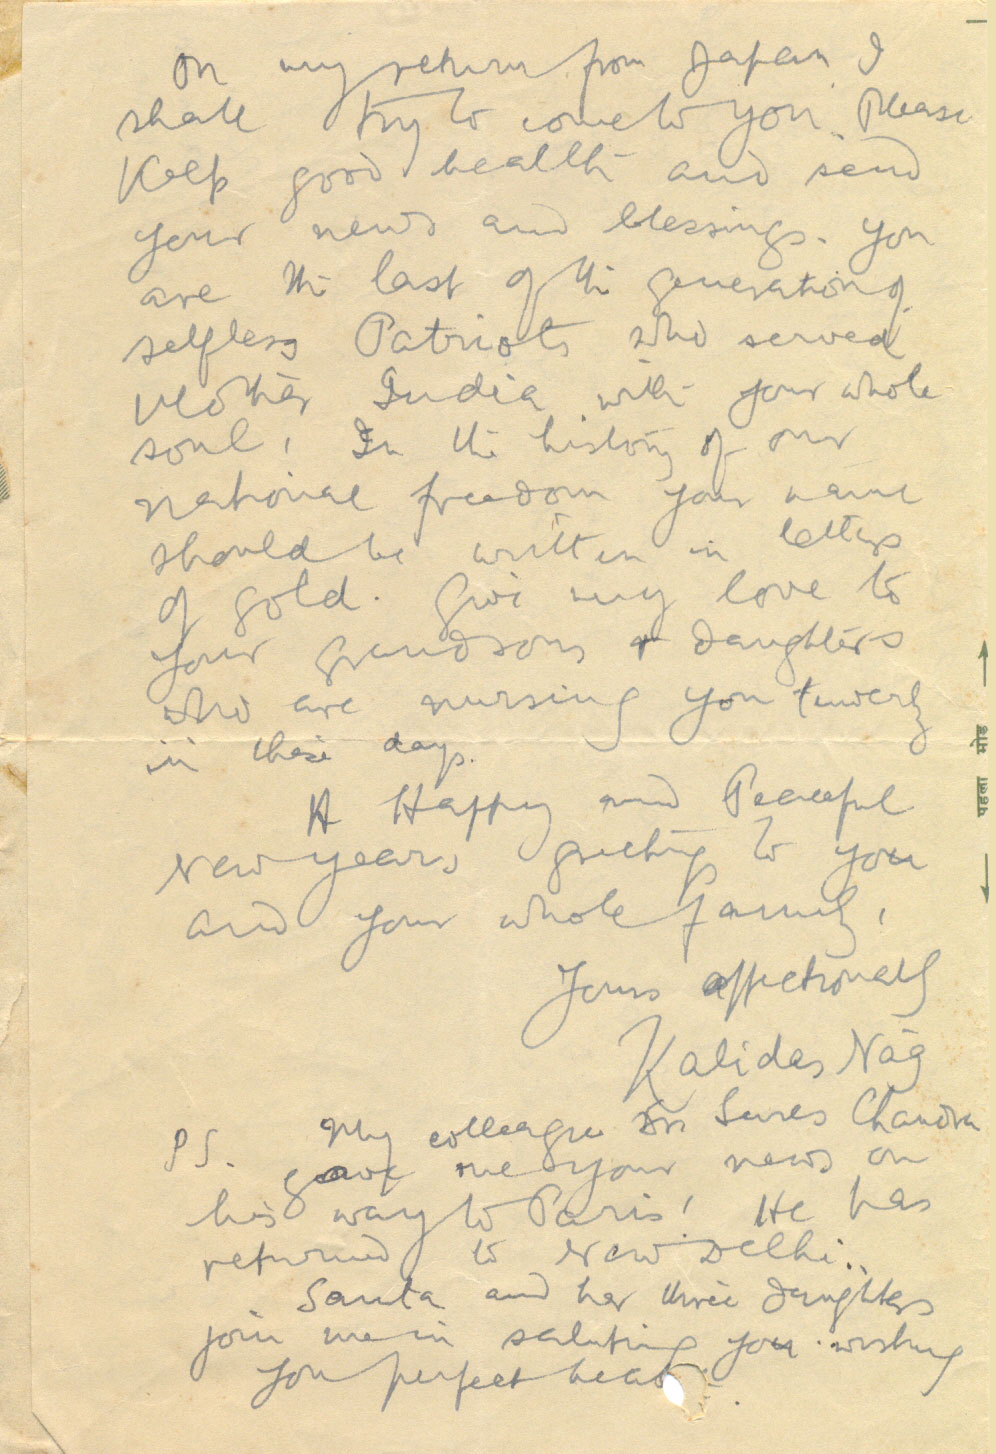 On my return from Japan I
shall try to come to you. Please
Keep good health and send
your news and blessings. You
are the last of the generation of
selfless Patriots who served
Mother India with your whole
soul! In the history of our
national freedom your name
should be written in letters
of gold. Give my love to
your grandsons & daughters
who are nursing you tenderly
in these days.
A Happy and Peaceful
New Years greeting to you
and your whole family,
Yours affectionately
Kalidas Nag
P S. My colleague Dr. Sures Chandra
gave me your news on
his way to Paris! He has
returned to New Delhi.
Santa and her three daughters
join me in saluting you wishing
you perfect
पहला मोड़